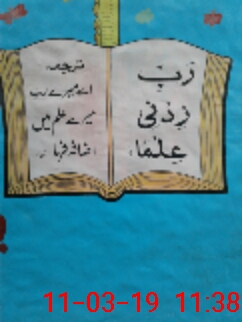 رَبِّ
زِدْنِی
عِلْمًا
ترجمہ
اے میرے رب
میرے علم میں
اضافہ فرما
11-03-19 11:38